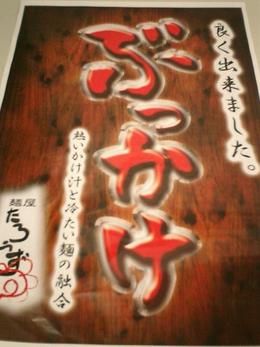 良く出来ました。
ぶっかけ
熱いかけ汁と冷たい麺の融合
麺屋
たろうず